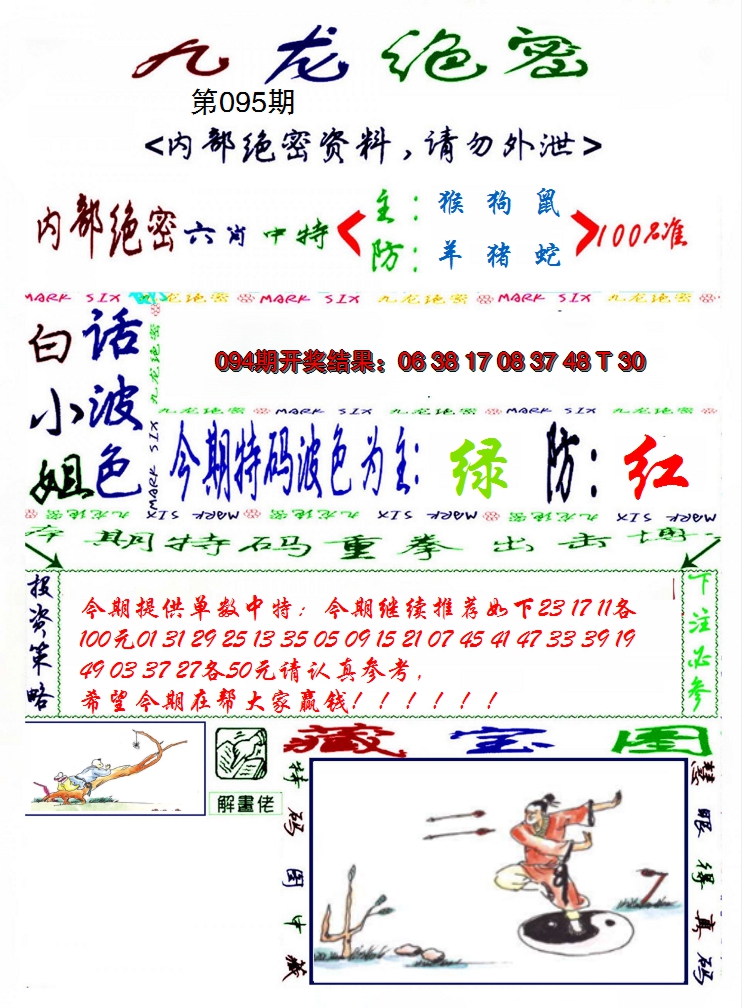 九龙绝密
第095期
<内部绝密资料,请勿外泄>
内部绝密六肖中特
主:猴 狗 鼠
防:羊 猪 蛇
100%准
MARK SIX 九龙绝密 MARK SIX 九龙绝密 MARK SIX 九龙绝密
白小姐
话波色
九龙绝密 MARK SIX
094期开奖结果:06 38 17 08 37 48 T 30
九龙绝密 MARK SIX 九龙绝密 MARK SIX 九龙绝密
今期特码波色为主:绿 防:红
九龙绝密 MARK SIX 九龙绝密 MARK SIX 九龙绝密 MARK SIX
本期特码重拳出击博
投资策略
今期提供单数中特;今期继续推荐如下23 17 11各
100元01 31 29 25 13 35 05 09 15 21 07 45 41 47 33 39 19
49 03 37 27各50元请认真参考,
希望今期在帮大家赢钱!!!!!!
下注必参
解畫佬
藏宝图
特码图中藏
慧眼得真码